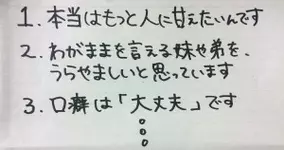 1. 本当はもっと人に甘えたいんです
2. わがままを言える妹や弟を、
うらやましいと思っています
3. 口癖は「大丈夫」です
。
。
。